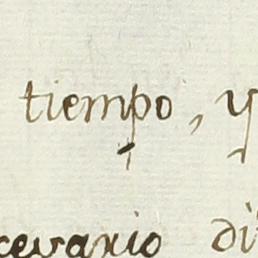 tiempo, y
cevario di